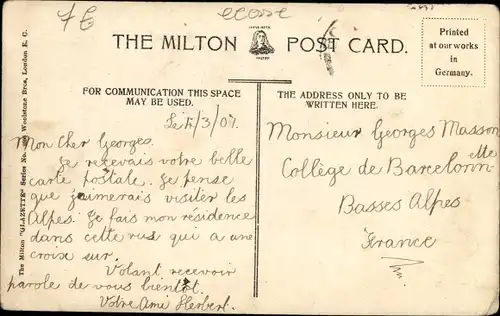 7E
ecosse
THE MILTON POST CARD.
Printed
at our works
in
Germany.
FOR COMMUNICATION THIS SPACE
MAY BE USED.
THE ADDRESS ONLY TO BE
WRITTEN HERE.
The Milton "GLAZETTE" Series No. Woolstone Bros, London E. C.
Le 4/3/07.
Mon cher Georges.
Je recevais votre belle
carte postale. Je pense
que j'aimerais visiter les
Alpes. Je fais mon residence
dans cette rus qui a une
croix sur.
Volant recevoir
parole de vous bientôt.
Votre Ami Herbert.
Monsieur Georges Masson
Collège de Barcelonn
ette
Basses Alpes
France